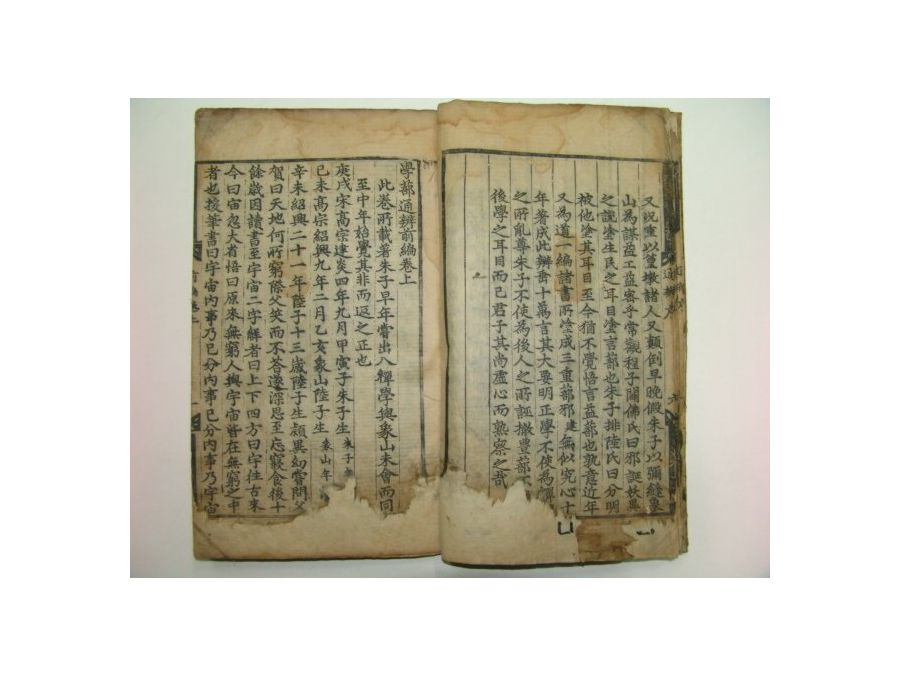 又況重以篁墩諸人又顛倒早晚假朱子以彌縫象
山為謀益工益密乎常觀程子闢佛氏曰邪誕妖異
之說塗生民之耳目塗言蔀也朱子排陸氏曰分明
被他塗其耳目至今猶不覺悟言益蔀也孰意近年
又為道一編諸書所塗成三重蔀邪建無似究心十
年著成此辨垂十萬言其大要明正學不使為
之所亂尊朱子不使為後人之所誣撤豊蔀不
後學之耳目而已君子其尚虛心而熟察之哉
學蔀通辨前編卷上
此卷所載著朱子早年嘗出入禪學與象山未會而同
至中年始覺其非而返之正也
庚戌宋高宗建炎四年九月甲寅子朱子生 朱子年
己未高宗紹興九年二月乙亥象山陸子生 象山年
辛未紹興二十一年陸子十三歲陸子生穎異幼嘗問父
賀曰天地何所窮際父笑而不荅遂深思至忘寢食後十
餘歲因讀書至宇宙二字解者曰上下四方曰宇往古來
今曰宙忽大省悟曰原來無窮人與宇宙皆在無窮之中
者也援筆書曰宇宙內事乃已分內事已分內事乃宇宙